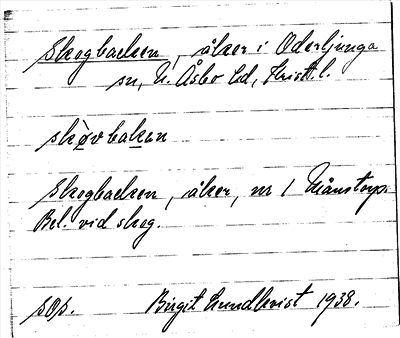 Skogbacken, åker i Oderljunga
sn, N. Åsbo hd, Krist. l.
skòvbakan
Skogbacken, åker, nr 1 Månstorp.
Bel. vid skog.
sos. Birgit Lundkvist 1938.